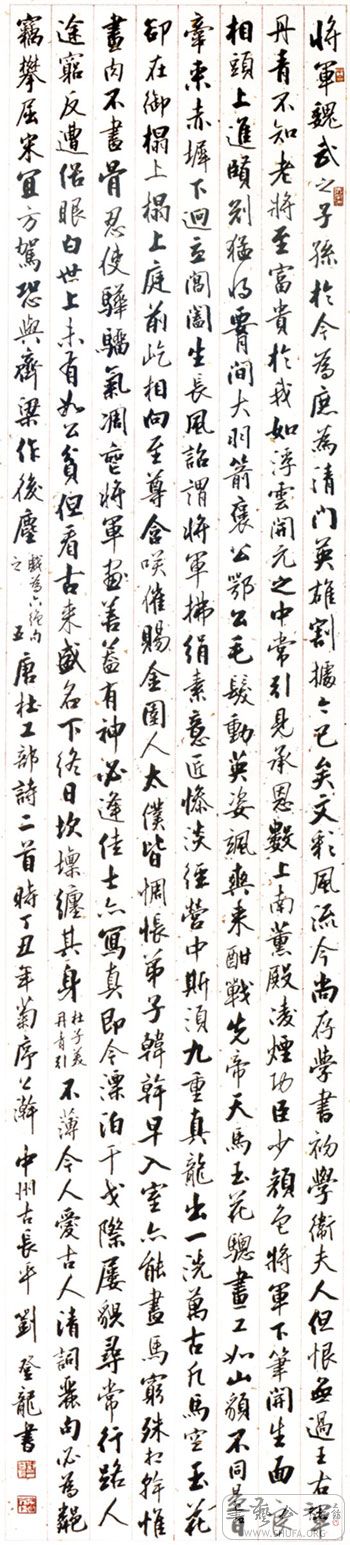 將軍魏武之子孫於今為庶為清門英雄割據已矣文彩風流今尚存學書初學衛夫人但恨無過王右軍
丹青不知老將至富貴於我如浮雲開元之中常引見承恩數上南薰殿凌煙功臣少顏色將軍下筆開生面良
相頭上進賢冠猛將腰間大羽箭褒公鄂公毛髮動英姿颯爽來酣戰先帝天馬玉花驄畫工如山貌不同是日
牽來赤墀下迥立閶闔生長風詔謂將軍拂絹素意匠慘淡經營中斯須九重真龍出一洗萬古凡馬空玉花
卻在御榻上榻上庭前屹相向至尊含笑催賜金圉人太僕皆惆悵弟子韓幹早入室亦能畫馬窮殊相幹惟
畫肉不畫骨忍使驊騮氣凋喪將軍畫善蓋有神必逢佳士亦寫真即今漂泊干戈際屢貌尋常行路人
途窮反遭俗眼白世上未有如公貧但看古來盛名下終日坎壈纏其身杜子美丹青引不薄今人愛古人清詞麗句必為鄰
竊攀屈宋宜方駕恐與齊梁作後塵戲為六絕句之五唐杜工部詩二首時丁丑年菊序中州古長平劉登龍書